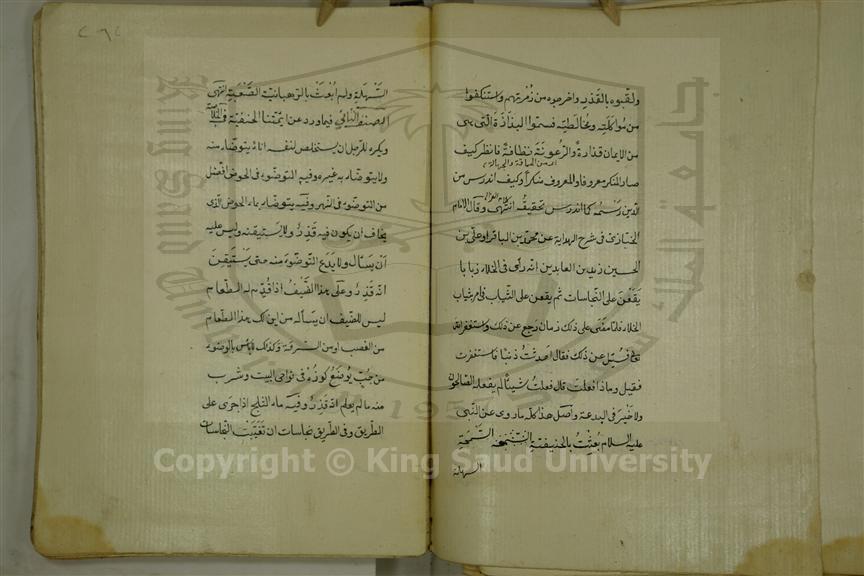 ولقبوه بالقذر واخرجوه من زمرتهم واستنكفوا
من مواكلته ومخالطته فسموا البذاذة التى هى
من الايمان قذارة والرعونة نظافة فانظر كيف
صار المنكر معروفا والمعروف منكرا وكيف اندرس من
الدين رسمه كما اندرس تحقيقه انتهى وقال الامام
الخبازى فى شرح الهداية عن محمد بن الباقر او على بن
الحسين زين العابدين انه رأى فى الخلاء ذبابا
يقعن على النجاسات ثم يقعن على الثياب فامر بثياب
الخلاء فلما مضى على ذلك زمان رجع عن ذلك واستغفر الله
فسئل عن ذلك فقال احدثت ذنبا فاستغفرت
فقيل وماذا فعلت قال فعلت شيئا لم يفعله الصالحون
ولا خير فى البدعة واصل هذا كله ما روى عن النبى
عليه السلام بعثت بالحنيفية السمحة
السهلة
السهلة ولم ابعث بالرهبانية الصعبة انتهى
الصنف الثانى فيما ورد عن ائمتنا الحنفية
ويكره للرجل ان يستخلص لنفسه اناء يتوضاء منه
ولا يتوضاء به غيره وفيه التوضوء فى الحوض افضل
من التوضوء فى النهر وفيه يتوضاء بماء الحوض الذى
يخاف ان يكون فيه قذر ولا يستيقنه وليس عليه
ان يسأل ولا يدع التوضوء منه حتى يستيقن
انه قذر وعلى هذا الضيف اذا قدم له الطعام
ليس للضيف ان يسأله من اين لك هذا الطعام
من الغصب او من السرقة وكذلك لا بأس بالوضوء
من جب يوضع كوزه فى نواحى البيت وشرب
منه ما لم يعلم انه قذر وفيه ماء الثلج اذا جرى على
الطريق وفى الطريق نجاسات ان تغيبت النجاسات
Copyright © King Saud University
King Saud University
جامعة الملك سعود
1957